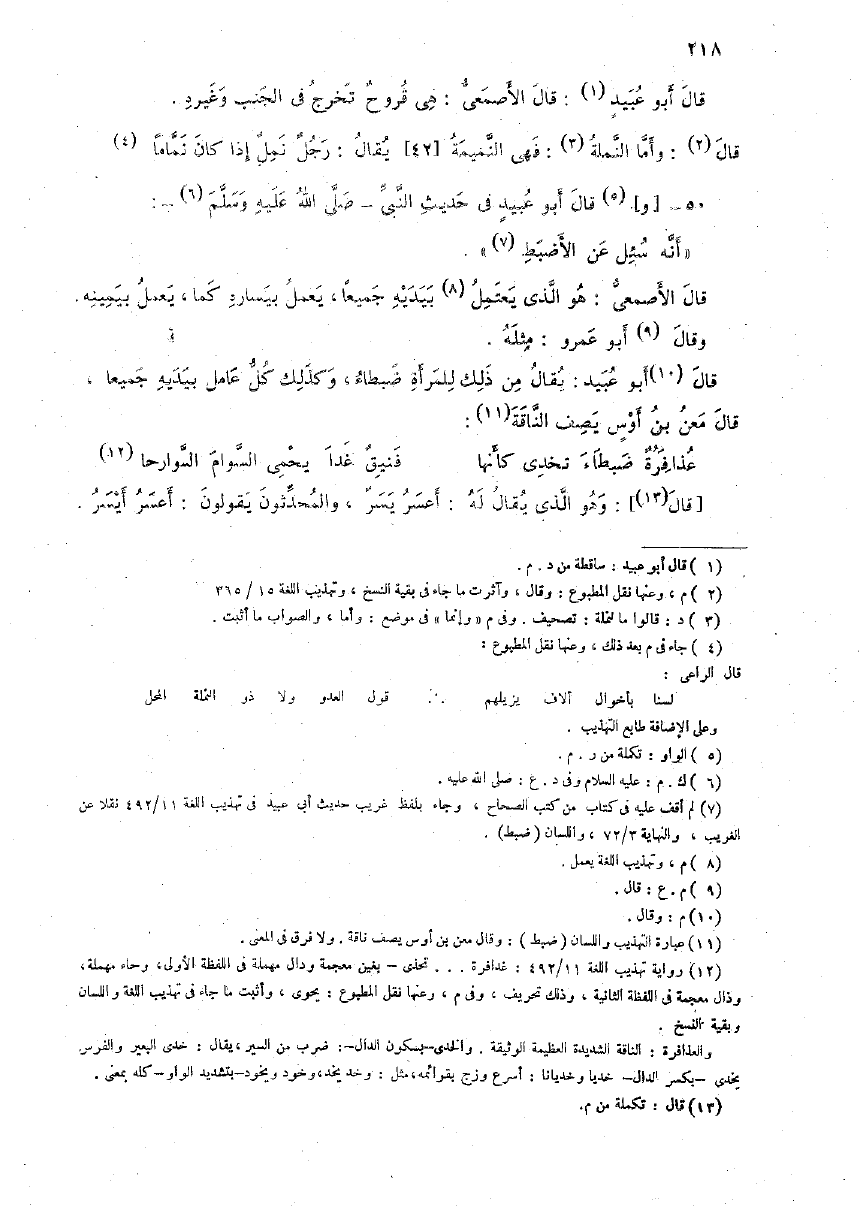 ٢١٨
قالَ أَبو عُبَيدٍ (١) : قالَ الأَصمَعىُّ : هِى قُروحٌ تَخرجُ فى الجَنب وَغَيرِه .
قالَ (٢) : وأَمَّا النَّملةُ (٣) : فَهى النَّميمَةُ [٤٢] يُقالُ : رَجُلٌ نَمِلٌ إِذا كانَ نَمَّاماً (٤)
٥٠ – [و] (٥) قالَ أَبو عُبيدٍ فى حَديثِ النَّبىِّ – صَلَّى اللهُ عَلَيهِ وَسَلَّمَ (٦) – :
« أَنَّه سُئِل عَن الأَضبَطِ (٧) » .
قالَ الأَصمعىُّ : هُو الَّذى يَعتَمِلُ (٨) بَيَدَيْهِ جَميعاً ، يَعملُ بيَسارهِ كَما ، يَعملُ بيَمِينِه .
وقالَ (٩) أَبو عَمرو : مِثلَهُ .
قالَ (١٠) أَبو عُبَيد : يُقالُ مِن ذَلِك لِلمَرأَةِ ضَبطاءُ ، وَكذَلِك كُلُّ عَامل بيَدَيهِ جَميعا ،
قالَ مَعنُ بنُ أَوْسٍ يَصِف النَّاقَةَ (١١) :
عُذافِرَةٌ ضَبطَاءَ تَخدِى كأَنها فَنيقٌ غَداَ يحْمِى السَّوامَ السَّوارحا (١٢)
[قالَ (١٣)] : وَهُو الَّذى يُقالُ لَهُ : أَعسَرُ يَسَرٌ ، والمُحدِّثونَ يَقولونَ : أَعسَرُ أَيْسَرُ .
(١) قال أبو عبيد : ساقطة من د . م .
(٢) م ، وعنها نقل المطبوع : وقال ، وآثرت ما جاء فى بقية النسخ ، وتهذيب اللغة ١٥ / ٣٦٥
(٣) د : قالوا ما نملة : تصحيف . وفى م « وإنما » فى موضع : وأما ، والصواب ما أثبت .
(٤) جاء فى م بعد ذلك ، وعنها نقل المطبوع :
قال الراعى :
لسنا بأخوال آلاف يزيلهم ∴ قول العدو ولا ذو النملة المحل
وعلى الإضافة طابع التهذيب .
(٥) الواو : تكملة من ر . م .
(٦) ك . م : عليه السلام وفى د . ع : صلى الله عليه .
(٧) لم أقف عليه فى كتاب من كتب الصحاح ، وجاء بلفظ غريب حديث أبي عبيد فى تهذيب اللغة ٤٩٢/١١ نقلا عن
الغريب ، والنهاية ٧٢/٣ ، واللسان (ضبط) .
(٨) م ، وتهذيب اللغة يعمل .
(٩) م . ع : قال .
(١٠) م : وقال .
(١١) عبارة التهذيب واللسان (ضبط ) : وقال معن بن أوس يصف ناقة . ولا فرق فى المعنى .
(١٢) رواية تهذيب اللغة ٤٩٢/١١ : غدافرة . . . تحذى – بغين معجمة ودال مهملة فى اللفظة الأولى، وحاء مهملة ،
وذال معجمة فى اللفظة الثانية ، وذلك تحريف ، وفى م ، وعنها نقل المطبوع : يحوى ، وأثبت ما جاء فى تهذيب اللغة واللسان
وبقية النسخ .
والعذافرة : الناقة الشديدة العظيمة الوثيقة . والخدى–بسكون الدال–: ضرب من السير ،يقال : خدى البعير والفرس
يخدى –بكسر الدال– خديا وخديانا : أسرع وزج بقوائمه،مثل : وخد يخد،وخود ويخود–بتشديد الواو–كله بمعنى .
(١٣) قال : تكملة من م.